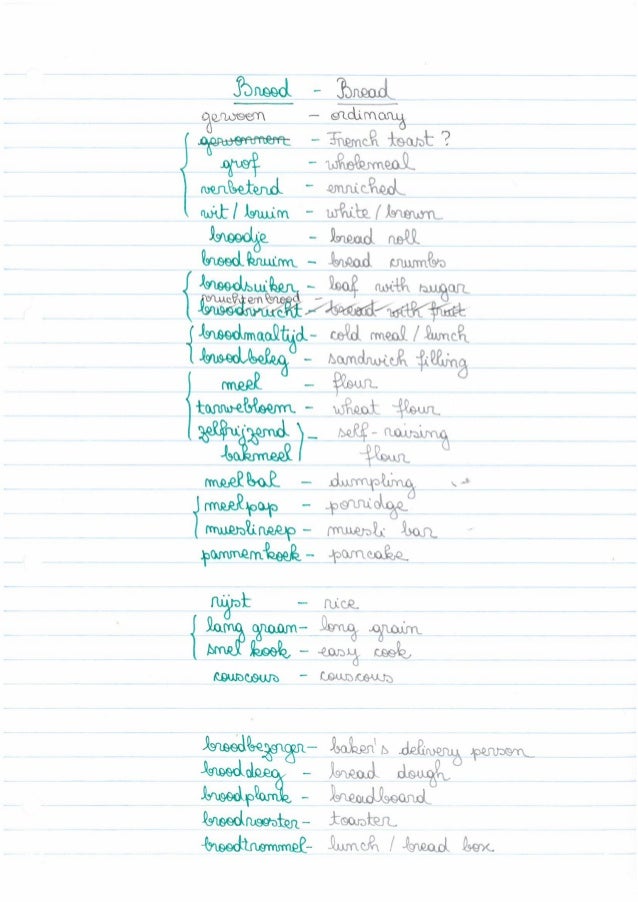 Brood - Bread
gewoon - ordinary
gewonnen - French toast ?
grof - wholemeal
verbeterd - enriched
wit / bruin - white / brown
broodje - bread roll
broodkruim - bread crumbs
broodsuiker - loaf with sugar
vruchtenbrood -
broodvrucht - bread with fruit
broodmaaltijd - cold meal / lunch
broodbeleg - sandwich filling
meel - flour
tarwebloem - wheat flour
zelfrijzend - self-raising
bakmeel flour
meelbal - dumpling
meelpap - porridge
mueslireep - muesli bar
pannenkoek - pancake
rijst - rice
lang graan - long grain
snel kook - easy cook
couscous - couscous
broodbezorger - baker's delivery person
brooddeeg - bread dough
broodplank - breadboard
broodrooster - toaster
broodtrommel - lunch / bread box